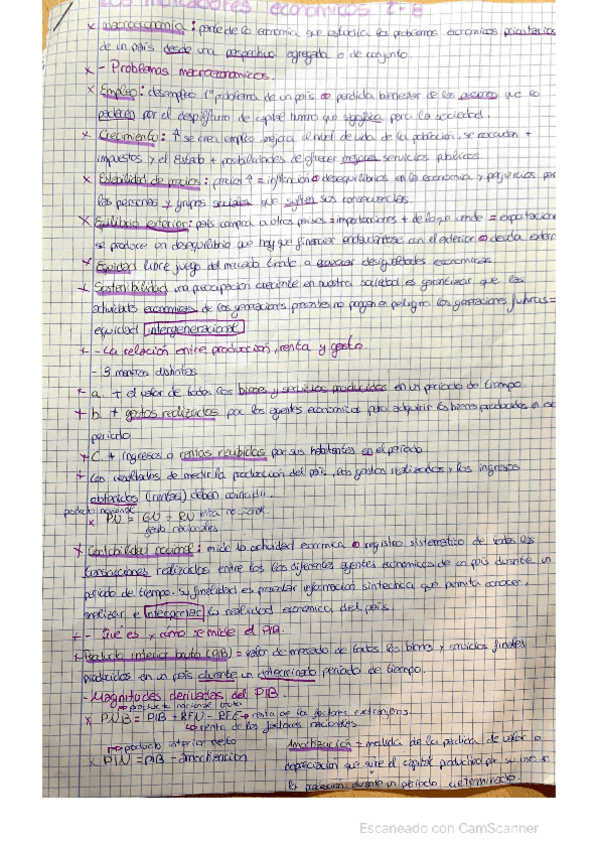 Los indicadores económicos T-8
x macroeconomia : parte de la economia que estudia los problemas economicos prioritarios
de un país desde una perspectiva agregada o de conjunto.
x - Problemas macroeconomicos.
x Empleo: desempleo 1º problema de un país perdida bienestar de las personas que lo
padecen por el despilfarro de capital humano que significa para la sociedad.
x Crecimiento: ↑ se crea empleo, mejora el nivel de vida de la población, se recaudan +
impuestos y el Estado + posibilidades de ofrecer mejores servicios públicos.
x Estabilidad de precios: precios ↑ = inflación desequilibrios en la economia y perjuicios para
las personas y grupos sociales que sufren sus consecuencias.
x Equilibrio exterior: país compra a otros países = importaciones + de lo que vende = exportación
se produce un desequilibrio que hay que financiar endeudándose con el exterior deuda extern
x Equidad libre juego del mercado tiende a desigualdades económicas.
x Sostenibilidad una preocupación creciente en nuestra sociedad es garantizar que las
actividades económicas de las generaciones presentes no pongan en peligro las generaciones futuras =
equidad intergeneracional
x - La relación entre producción, renta y gasto.
- 3 maneras distintas
- a. + el valor de todos los bienes y servicios producidos en un periodo de tiempo.
+ b. + gastos realizados por los agentes economicos para adquirir los bienes producidos en ese
periodo
+ C. + ingresos o rentas recibidas por sus habitantes en el periodo
+ Los resultados de medir la producción del país, los gastos realizados y los ingresos
obtenidos (rentas) deben coincidir.
producto nacional
x PN = GN = RN renta nacional
gasto nacionales
x Contabilidad nacional: mide la actividad económica registro sistematico de todas las
transacciones realizadas entre los diferentes agentes economicos de un país durante un
periodo de tiempo. Su finalidad es presentar información sintetica que permita conocer,
analizar, e interpretar la realidad económica del país.
x - Que es y cómo se mide el PIB.
x Producto interior bruto (PIB) = valor de mercado de todos los bienes y servicios finales
producidos en un país durante un determinado periodo de tiempo.
- Magnitudes derivadas del PIB.
producto nacional bruto
x PNB = PIB + RFN - RFE → renta de los factores extranjeros
renta de los factores nacionales
producto interior neto
x PIN = PIB - Amortización
Amortización = medida de la perdida de valor o
depreciación que sufre el capital productivo por su uso en
la producción durante un periodo determinado.
Escaneado con CamScanner